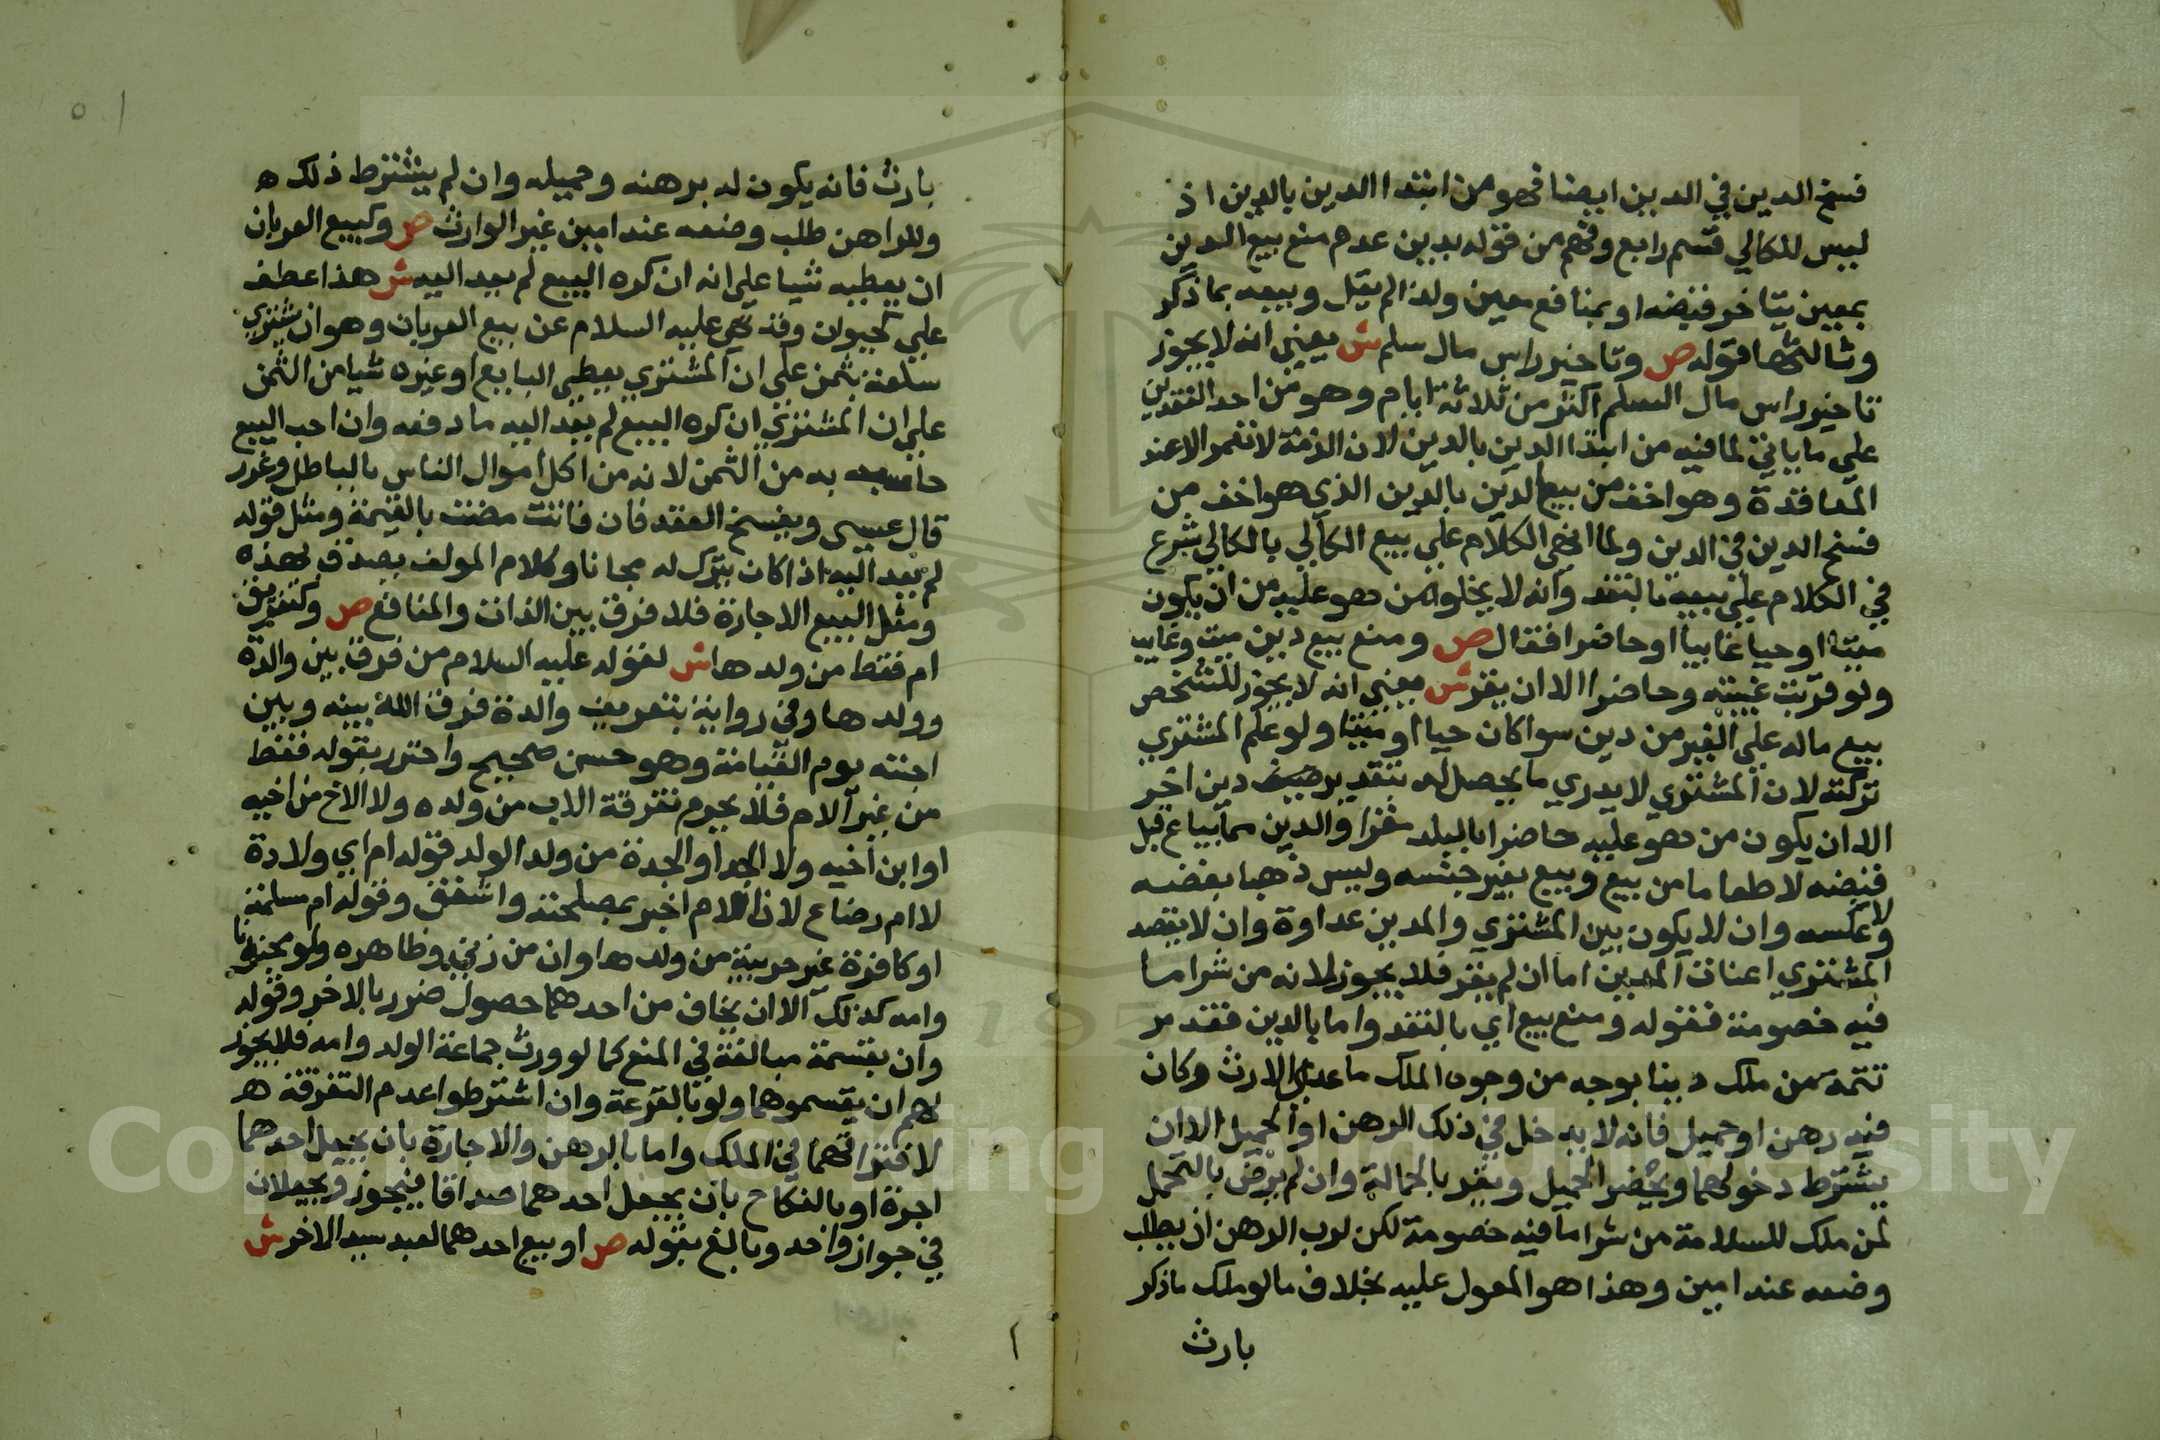 فسخ الدين في الدين ايضا فهو من ابتدا الدين بالدين اذ
ليس للكالي قسم رابع وفهم من قوله بدين عدم منع بيع الدين
بمعين يتاخر قبضه او بمنافع معين ولذا لم يقل وبيعه بما ذكر
وثالثها قوله ص وتاخير راس مال سلم ش يعني انه لا يجوز
تاخير راس مال السلم اكثر من ثلاثة ايام وهو من احد النقدين
علي ما ياتي لما فيه من ابتدا الدين بالدين لان الذمة لا تعمر الا عند
المعاقدة وهو اخف من بيع الدين بالدين الذي هو اخف من
فسخ الدين في الدين ولما انهي الكلام علي بيع الكالي بالكالي شرع
في الكلام علي بيعه بالنقد وانه لا يخلو من هو عليه من ان يكون
ميتا او حيا غايبا او حاضرا فقال ص ومنع بيع دين ميت وغايب
ولو قربت غيبته وحاضرا الا ان يقر ش يعني انه لا يجوز للشخص
بيع ماله علي الغير من دين سوا كان حيا او ميتا ولو علم المشتري
تركته لان المشتري لا يدري ما يحصل له بتقدير دين اخر
الا ان يكون من هو عليه حاضرا بالبلد مقرا والدين مما يباع قبل
قبضه لا طعاما من بيع وبيع بغير جنسه وليس ذهبا بفضه
ولا عكسه وان لا يكون بين المشتري والمدين عداوة وان لا يقصد
المشتري اعنات المدين اما ان لم يقر فلا يجوز لانه من شرا ما
فيه خصومة فقوله ومنع بيع اي بالنقد واما بالدين فقد مر
تتمة من ملك دينا بوجه من وجوه الملك ما عدا الارث وكان
فيه رهن او حميل فانه لا يدخل في ذلك الرهن او الحميل الا ان
يشترط دخولهما ويحضر الحميل ويقر بالحمالة وان لم يرض بالتحمل
لمن ملك للسلامة من شرا ما فيه خصومة لكن لرب الرهن ان يطلب
وضعه عند امين وهذا هو المعول عليه بخلاف ما لو ملك ما ذكر
بارث
بارث فانه يكون له برهنه وحميله وان لم يشترط ذلك ه
وللراهن طلب وضعه عند امين غير الوارث ص وكبيع العربان
ان يعطيه شيا علي انه ان كره البيع لم يعد اليه ش هذا عطف
علي كحيوان وقد نهي عليه السلام عن بيع العربان وهو ان يشتري
سلعة بثمن علي ان المشتري يعطي البايع او غيره شيا من الثمن
علي ان المشتري ان كره البيع لم يعد اليه ما دفعه وان احب البيع
حاسبه به من الثمن لانه من اكل اموال الناس بالباطل وغرر
قال عيسي ويفسخ العقد فان فاتت مضت بالقيمة ومثل قوله
لم يعد اليه اذا كان يترك له مجانا وكلام المولف يصدق بهذه
ومثل البيع الاجارة فلا فرق بين الذات والمنافع ص وكتفريق
ام فقط من ولدها ش لقوله عليه السلام من فرق بين والدة
وولدها وفي رواية بتعريف والدة فرق الله بينه وبين
احبته يوم القيامة وهو حسن صحيح واحترز بقوله فقط
من غير الام فلا يحرم تفرقة الاب من ولده ولا الاخ من اخيه
او ابن اخيه ولا الجد او الجدة من ولد الولد قوله ام اي ولادة
لا ام رضاع لان الام اخبر بمصلحته واشفق وقوله ام مسلمة
او كافرة غير حربية من ولدها وان من زني وظاهره ولو مجنونا
وامه كذلك الا ان يخاف من احدهما حصول ضرر بالاخر وقوله
وان بقسمة مبالغة في المنع كما لو ورث جماعة الولد وامه فلا يجوز
لهم ان يقسموهما ولو بالقرعة وان اشترطوا عدم التفرقة ه
لافتراقهما في الملك واما بالرهن والاجارة بان يجعل احدهما
اجرة او بالنكاح بان يجعل احدهما صداقا فيجوز ويجعلان
في جواز واحد وبالغ بقوله ص او بيع احدهما لعبد سيد الاخر ش